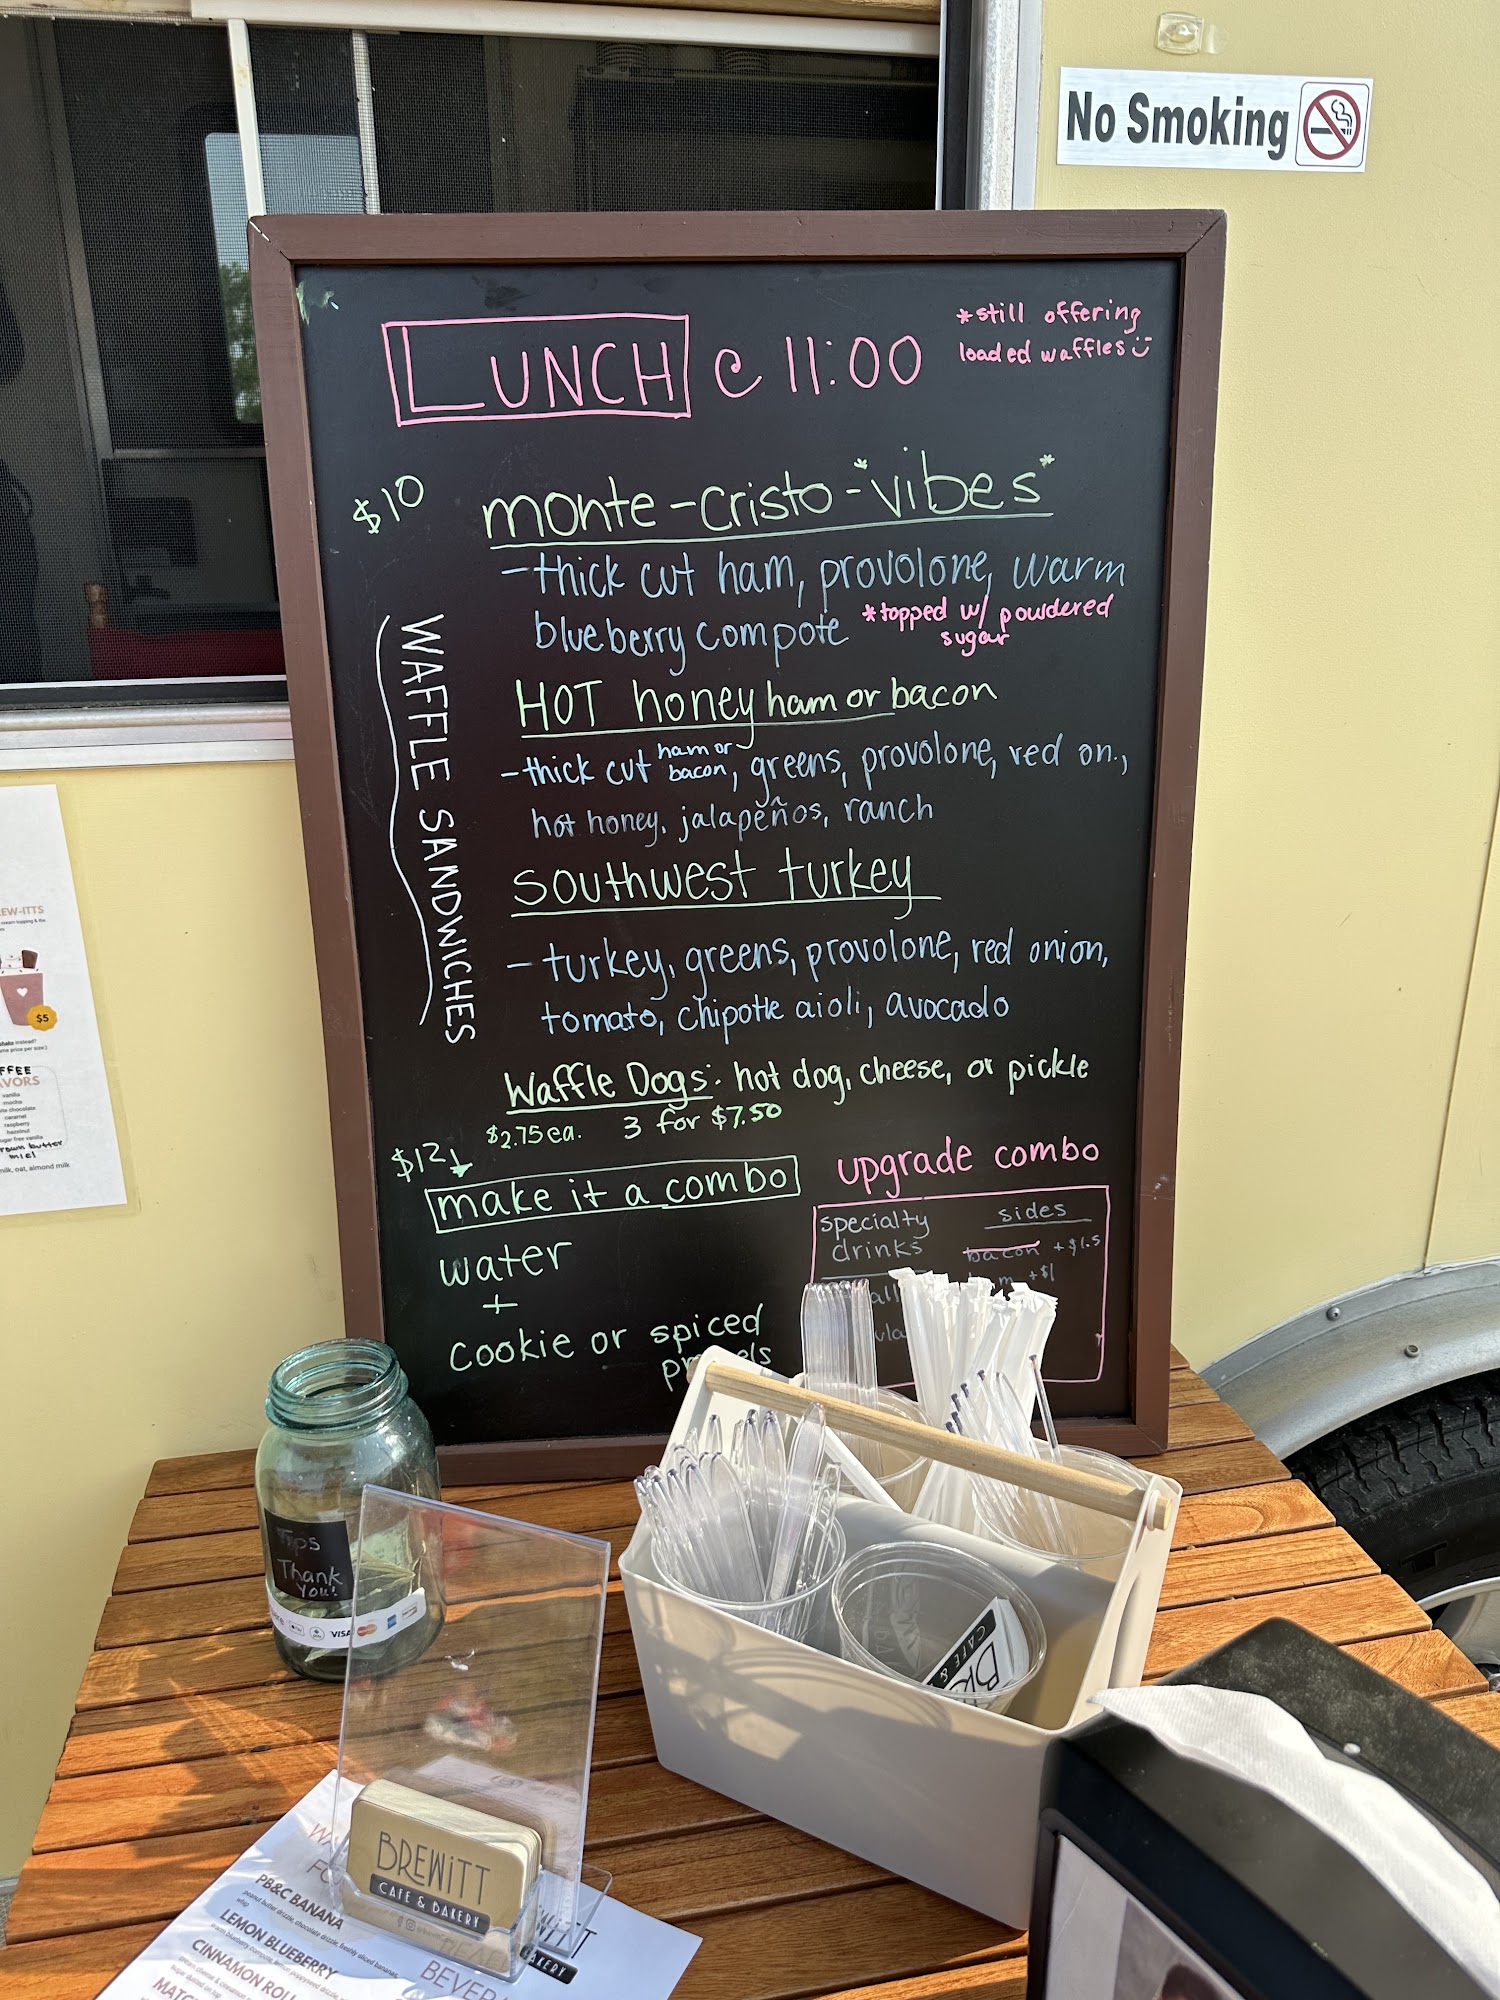 No Smoking
LUNCH @ 11:00
*still offering
loaded waffles
$10
WAFFLE SANDWICHES
monte-cristo-*vibes*
-thick cut ham, provolone, warm
blueberry compote
*topped w/ powdered
sugar
HOT honey ham or bacon
-thick cut ham or bacon, greens, provolone, red on.,
hot honey, jalapeños, ranch
southwest turkey
-turkey, greens, provolone, red onion,
tomato, chipotle aioli, avocado
Waffle Dogs: hot dog, cheese, or pickle
$2.75 ea. 3 for $7.50
$12
make it a combo
water
+
cookie or spiced
upgrade combo
specialty
drinks
sides
bacon +$1.5
+$1
EW-ITTS
$5
vanilla
mocha
caramel
raspberry
hazelnut
milk, oat, almond milk
Tips
Thank
You!
VISA
BREWITT
CAFE & BAKERY
PB&C BANANA
LEMON BLUEBERRY
CINNAMON ROLL